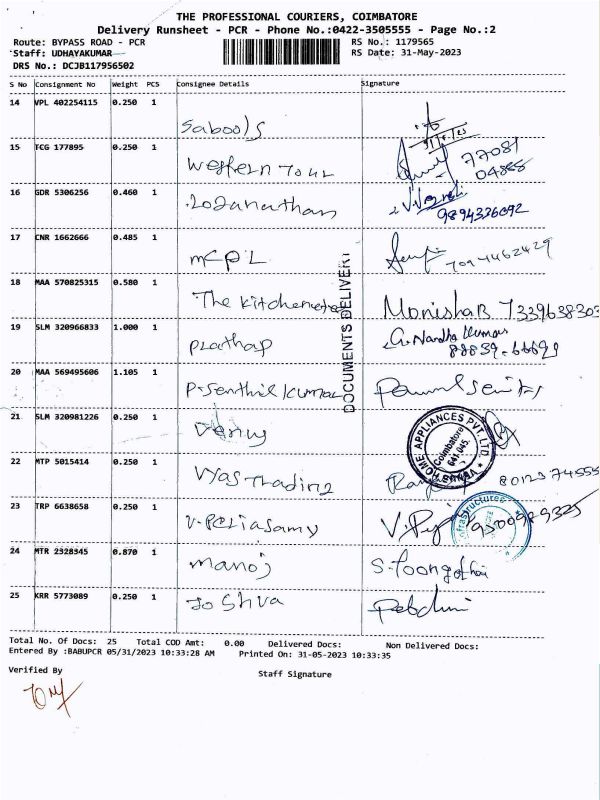 THE PROFESSIONAL COURIERS, COIMBATORE
Delivery Runsheet - PCR - Phone No.:0422-3505555 - Page No.:2
Route: BYPASS ROAD - PCR RS No.: 1179565
Staff: UDHAYAKUMAR RS Date: 31-May-2023
DRS No.: DCJB117956502
S No Consignment No Weight PCS Consignee Details Signature
14 VPL 402254115 0.250 1
Sabools
15 TCG 177895 0.250 1
Western Tour 77081
04888
16 GDR 5306256 0.460 1
Loganathan
9894326092
17 CNR 1662666 0.485 1
mcpL 7094462429
18 MAA 570825315 0.580 1
The kitchenete Monisha B 7339638303
19 SLM 320966833 1.000 1 G. Nandha Kumar
Prathap 88839-66691
20 MAA 569495606 1.105 1
P. Senthil kumar
DOCUMENTS DELIVERY
21 SLM 320981226 0.250 1
Venuy
HOME APPLIANCES PVT. LTD.
Coimbatore
641 045.
22 MTP 5015414 0.250 1
Vyas Trading 8012374555
23 TRP 6638658 0.250 1
V. Periasamy 9300989325
Infrastructures
24 MTR 2328345 0.870 1
manoj
25 KRR 5773089 0.250 1
Joshva
Total No. Of Docs: 25 Total COD Amt: 0.00 Delivered Docs: Non Delivered Docs:
Entered By :BABUPCR 05/31/2023 10:33:28 AM Printed On: 31-05-2023 10:33:35
Verified By Staff Signature